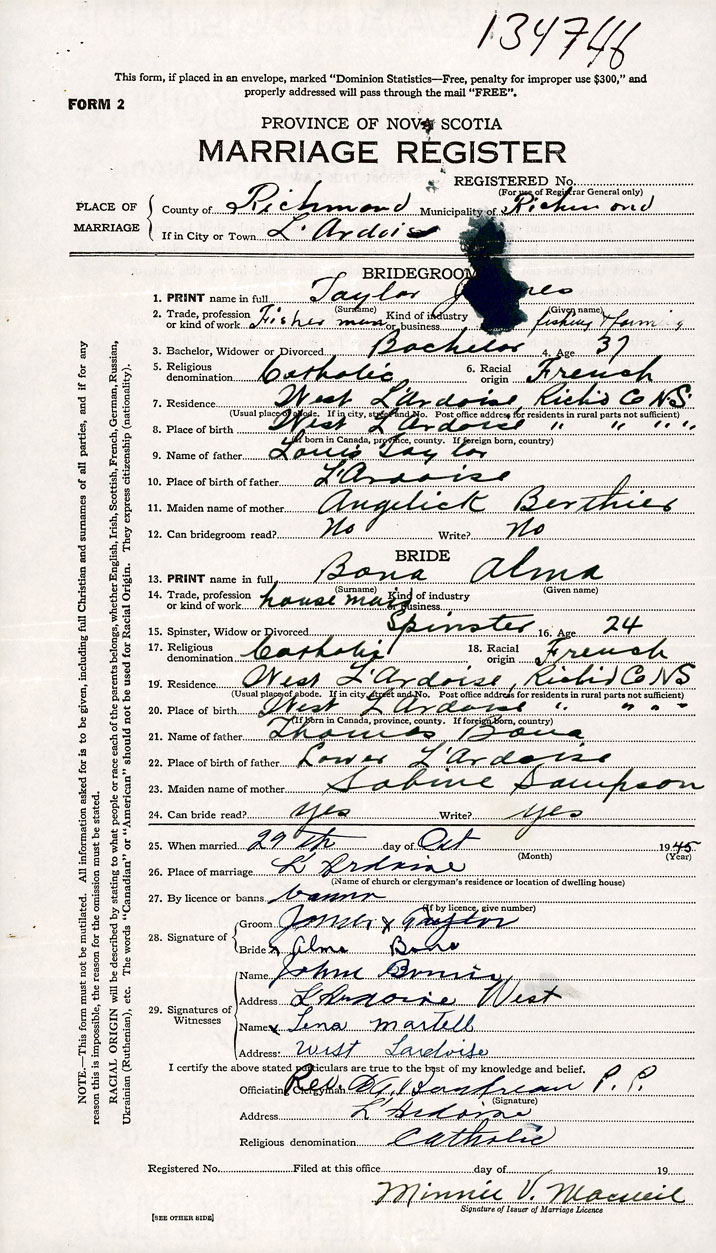 134746
This form, if placed in an envelope, marked "Dominion Statistics—Free, penalty for improper use $300," and
properly addressed will pass through the mail "FREE".
FORM 2
PROVINCE OF NOVA SCOTIA
MARRIAGE REGISTER
REGISTERED No.
(For use of Registrar General only)
PLACE OF MARRIAGE
County of Richmond Municipality of Richmond
If in City or Town L'Ardoise
BRIDEGROOM
1. PRINT name in full Taylor
(Surname) (Given name)
2. Trade, profession or kind of work Fisher man Kind of industry or business fishing & farming
3. Bachelor, Widower or Divorced Bachelor 4. Age 37
5. Religious denomination Catholic 6. Racial origin French
7. Residence West L'Ardoise, Richd Co NS
(Usual place of abode. If in city, street and No. Post office address for residents in rural parts not sufficient)
8. Place of birth West L'Ardoise " " " "
(If born in Canada, province, county. If foreign born, country)
9. Name of father Louis Taylor
10. Place of birth of father L'Ardoise
11. Maiden name of mother Angelick Berthier
12. Can bridegroom read? No Write? No
BRIDE
13. PRINT name in full Bona Alma
(Surname) (Given name)
14. Trade, profession or kind of work house maid Kind of industry or business
15. Spinster, Widow or Divorced Spinster 16. Age 24
17. Religious denomination Catholic 18. Racial origin French
19. Residence West L'Ardoise, Richd Co NS
(Usual place of abode. If in city, street and No. Post office address for residents in rural parts not sufficient)
20. Place of birth West L'Ardoise " " " "
(If born in Canada, province, county. If foreign born, country)
21. Name of father Thomas Bona
22. Place of birth of father Lower L'Ardoise
23. Maiden name of mother Sabine Sampson
24. Can bride read? yes Write? yes
25. When married 29th day of Oct 1945
(Month) (Year)
26. Place of marriage L'Ardoise
(Name of church or clergyman's residence or location of dwelling house)
27. By licence or banns banns
(If by licence, give number)
28. Signature of
Groom James x Taylor
Bride x Alma Bona
29. Signatures of Witnesses
Name John
Address L'Ardoise West
Name x Lena Martell
Address: West Lardoise
I certify the above stated particulars are true to the best of my knowledge and belief.
Officiating Clergyman Rev. P.P.
(Signature)
Address L'Ardoise
Religious denomination Catholic
Registered No. Filed at this office day of 19
Minnie V. Macneil
Signature of Issuer of Marriage Licence
[SEE OTHER SIDE]
NOTE.—This form must not be mutilated. All information asked for is to be given, including full Christian and surnames of all parties, and if for any
reason this is impossible, the reason for the omission must be stated.
RACIAL ORIGIN will be described by stating to what people or race each of the parents belongs, whether English, Irish, Scottish, French, German, Russian,
Ukrainian (Ruthenian), etc. The words "Canadian" or "American" should not be used for Racial Origin. They express citizenship (nationality).